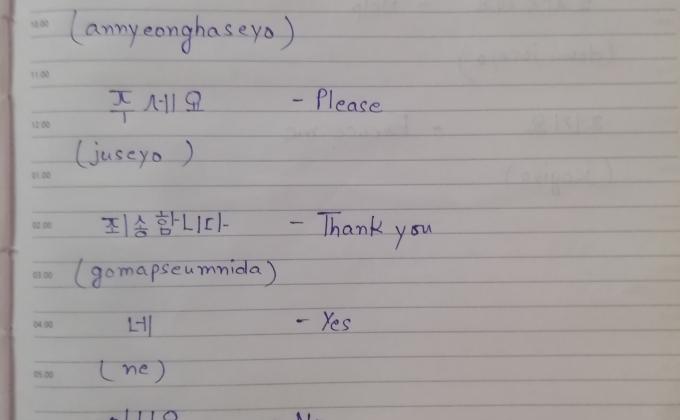 10.00
(annyeonghaseyo)
11.00
주세요 - Please
12.00
(juseyo)
01.00
02.00 죄송함니다 - Thank you
03.00 (gomapseumnida)
04.00 네 - Yes
05.00 (ne)